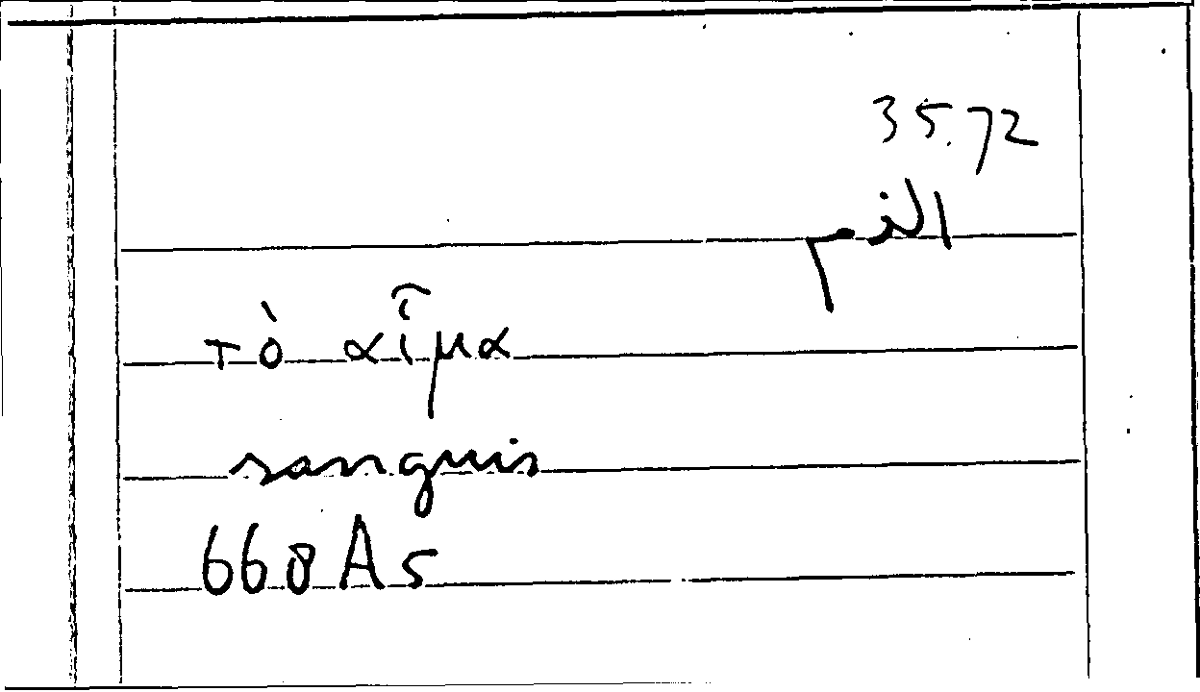 35.72
الدم
τὸ αἷμα
sanguis
668 A 5